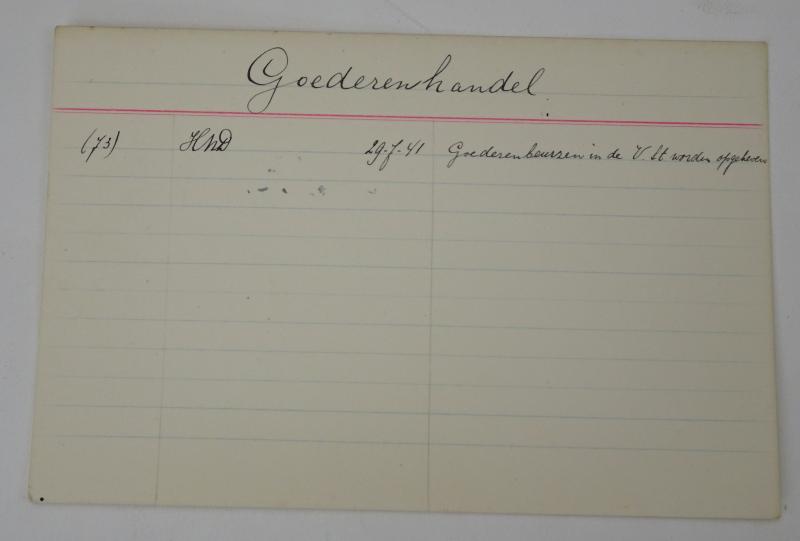 Goederenhandel.
(73) HND 29-7-41 Goederenbeurzen in de V. St. worden opgeheven